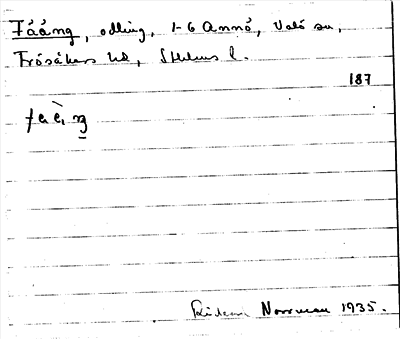 Fååäng, odling, 1-6 Annö, Valö sn,
Frösåkers hd, Sthlms l.
187
Norrman 1935.